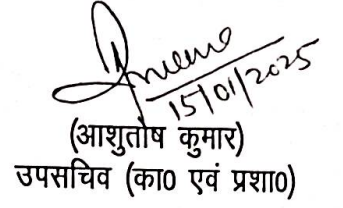 15/01/2025
(आशुतोष कुमार)
उपसचिव (का0 एवं प्रशा0)